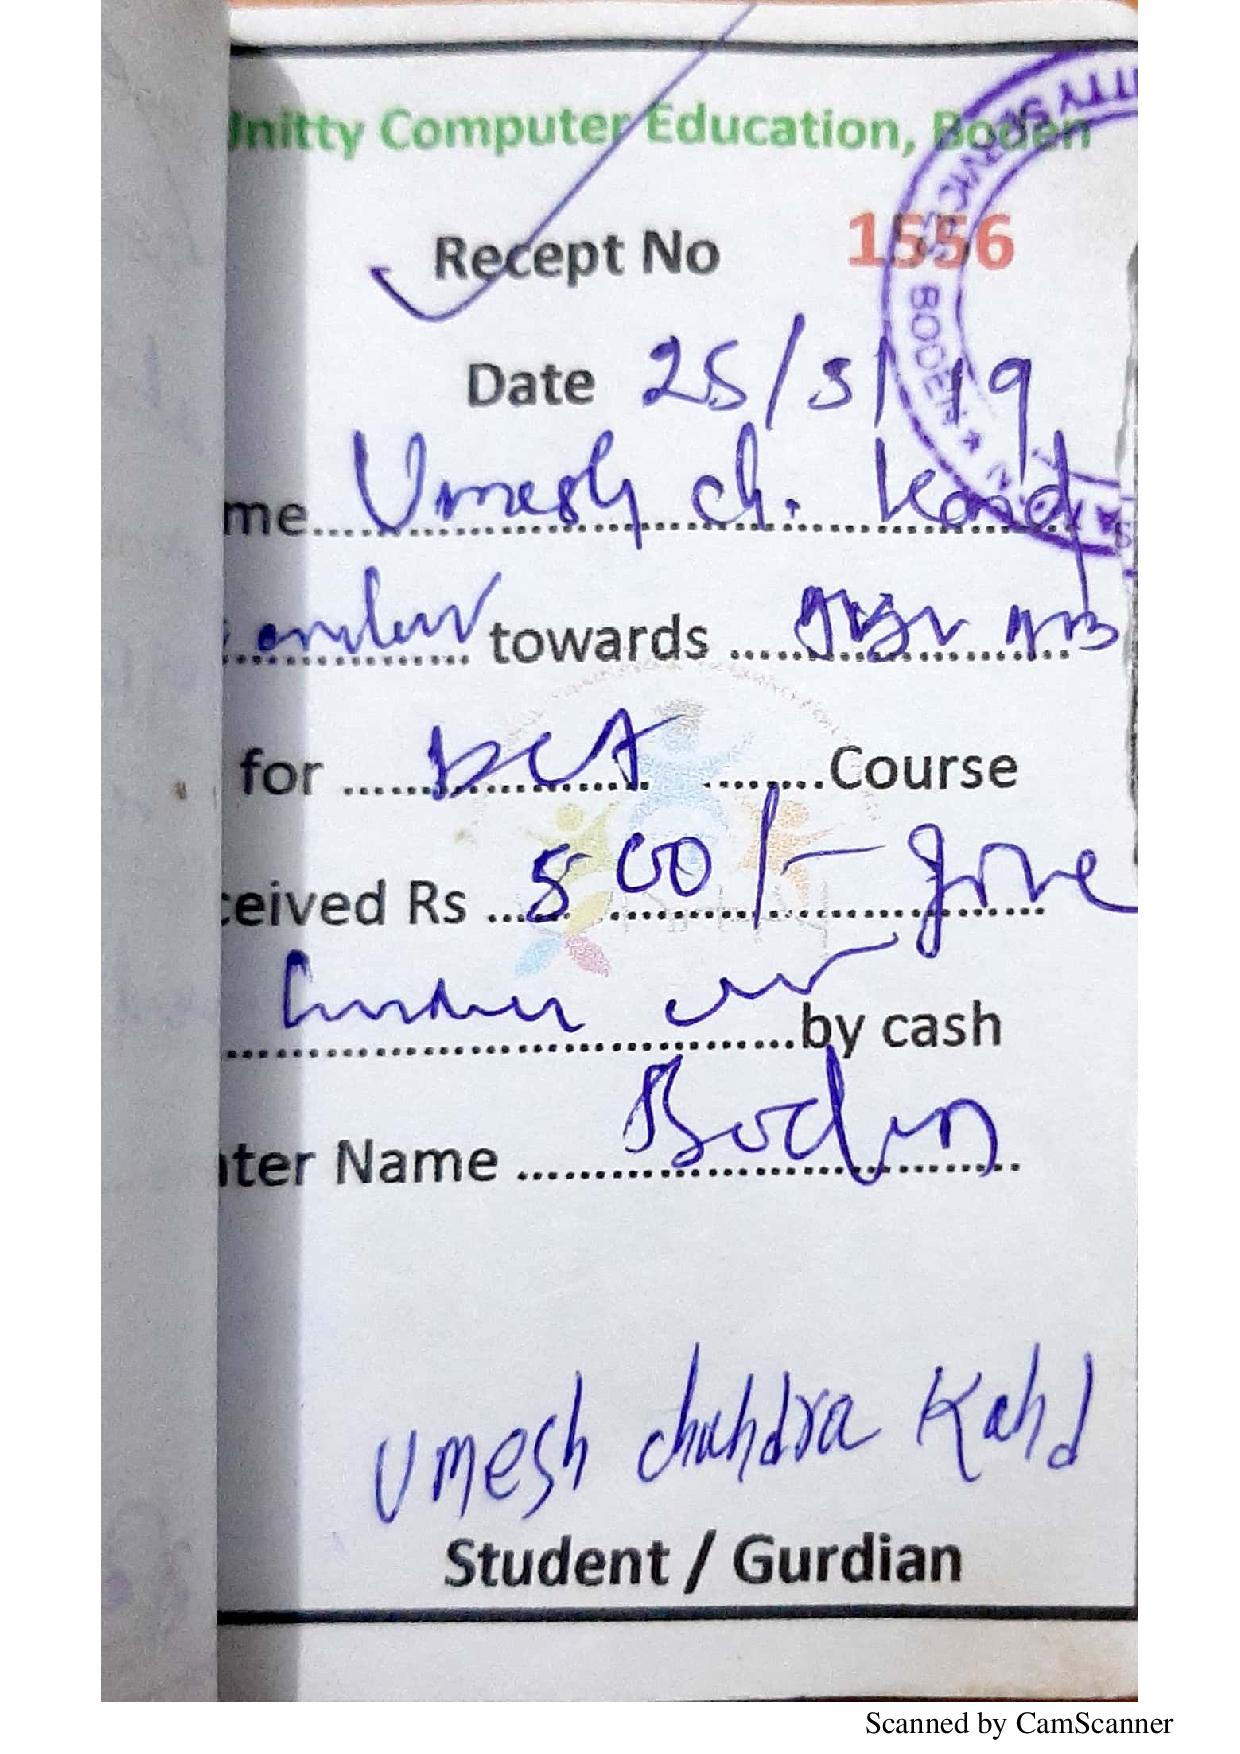 Unitty Computer Education, Boden
Recept No 1556
Date 25/3/19
me....Umesh ch. Kand
towards
for ....DCA ........Course
ceived Rs ....500/- five
hundred only ....by cash
nter Name ....Boden
Umesh chandra Kahd
Student / Gurdian
Scanned by CamScanner